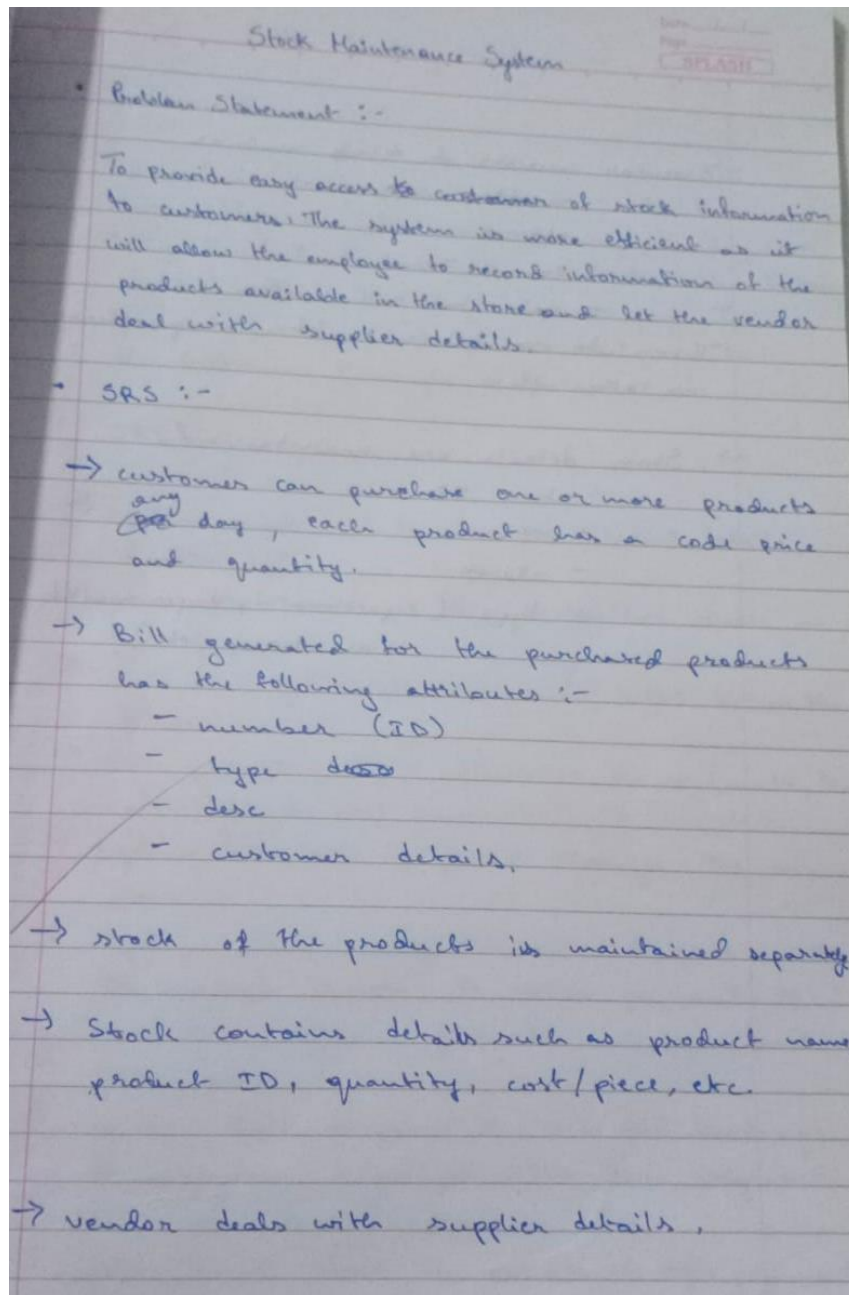 Stock Maintenance System
Date
Page
SPLASH
• Problem Statement :-
To provide easy access to of stock information
to customers. The system is more efficient as it
will allow the employee to record information of the
products available in the store and let the vendor
deal with supplier details.
• SRS :-
→ customer can purchase one or more products
any
day, each product has a code price
and quantity.
→ Bill generated for the purchased products
has the following attributes :-
- number (ID)
- type
- desc
- customer details.
→ stock of the products is maintained separately
→ Stock contains details such as product name
product ID, quantity, cost/piece, etc.
→ vendor deals with supplier details.